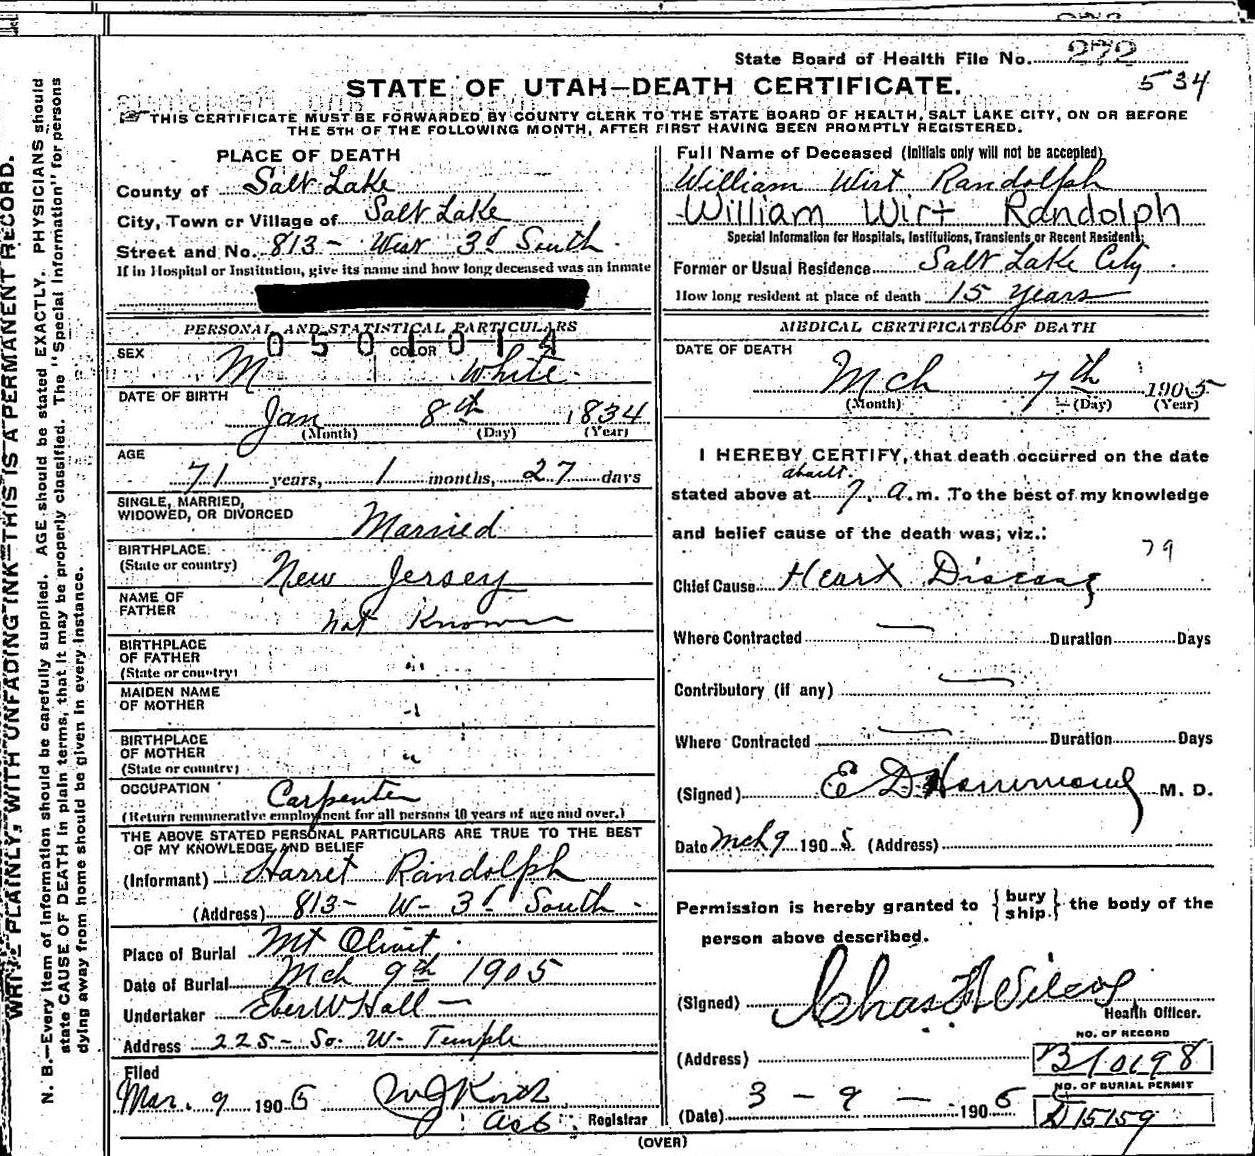 State Board of Health File No. 272
534
STATE OF UTAH—DEATH CERTIFICATE.
THIS CERTIFICATE MUST BE FORWARDED BY COUNTY CLERK TO THE STATE BOARD OF HEALTH, SALT LAKE CITY, ON OR BEFORE
THE 5TH OF THE FOLLOWING MONTH, AFTER FIRST HAVING BEEN PROMPTLY REGISTERED.
WRITE PLAINLY, WITH UNFADING INK—THIS IS A PERMANENT RECORD.
N. B.—Every item of information should be carefully supplied. AGE should be stated EXACTLY. PHYSICIANS should
state CAUSE OF DEATH in plain terms, that it may be properly classified. The "Special Information" for persons
dying away from home should be given in every instance.
PLACE OF DEATH
County of Salt Lake
City, Town or Village of Salt Lake
Street and No. 813- West 3d South
If in Hospital or Institution, give its name and how long deceased was an inmate
PERSONAL AND STATISTICAL PARTICULARS
0501014
SEX M COLOR White
DATE OF BIRTH
Jan 8th 1834
(Month) (Day) (Year)
AGE
71 years, 1 months, 27 days
SINGLE, MARRIED,
WIDOWED, OR DIVORCED Married
BIRTHPLACE
(State or country) New Jersey
NAME OF
FATHER not Known
BIRTHPLACE
OF FATHER "
(State or country)
MAIDEN NAME
OF MOTHER "
BIRTHPLACE
OF MOTHER "
(State or country)
OCCUPATION Carpenter
(Return remunerative employment for all persons 10 years of age and over.)
THE ABOVE STATED PERSONAL PARTICULARS ARE TRUE TO THE BEST
OF MY KNOWLEDGE AND BELIEF
(Informant) Harret Randolph
(Address) 813- W- 3d South
Place of Burial Mt Olivet
Date of Burial Mch 9th 1905
Undertaker Eber W Hall
Address 225- So. W. Temple
Filed
Mar. 9 1905
Registrar
Full Name of Deceased (Initials only will not be accepted)
William Wirt Randolph
William Wirt Randolph
Special Information for Hospitals, Institutions, Transients or Recent Residents:
Former or Usual Residence Salt Lake City
How long resident at place of death 15 years
MEDICAL CERTIFICATE OF DEATH
DATE OF DEATH
Mch 7th 1905
(Month) (Day) (Year)
I HEREBY CERTIFY, that death occurred on the date
about
stated above at 7, a.m. To the best of my knowledge
and belief cause of the death was, viz.:
79
Chief Cause Heart Disease
Where Contracted — Duration Days
Contributory (if any) —
Where Contracted — Duration Days
(Signed) E D Hammond M. D.
Date Mch 9 1905 (Address)
Permission is hereby granted to {bury
ship.} the body of the
person above described.
(Signed) Chas F Wilcox
Health Officer.
NO. OF RECORD
(Address) B10198
NO. OF BURIAL PERMIT
(Date) 3 - 9 - 1905 D15159
(OVER)